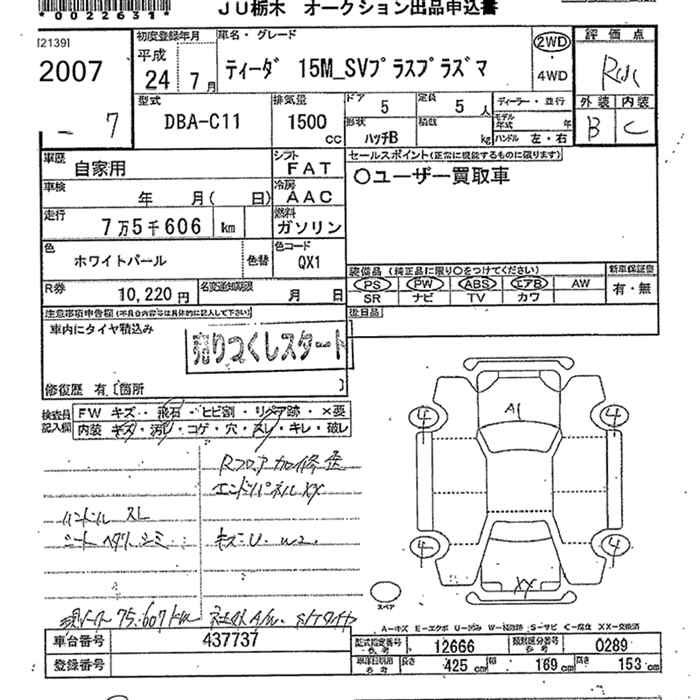 *0022631*
JU栃木 オークション出品申込書
[2139]
2007
- 7
初度登録年月
平成
24 7月
車名・グレード
ティーダ 15M_SVプラスプラズマ
2WD
4WD
評価点
外装 内装
B C
型式
DBA-C11
排気量
1500 cc
ドア 5
形状 ハッチB
定員 5人
積載 kg
ディーラー・並行
モデル年式 年
ハンドル 左・右
車歴
自家用
シフト
FAT
車検
年 月( 日)
冷房
AAC
走行
7万5千606 km
燃料
ガソリン
色
ホワイトパール
色替
色コード
QX1
R券
10,220円
名変通知期限
月 日
セールスポイント(正常に機能するものに限ります)
○ユーザー買取車
装備品 (純正品に限り○をつけてください)
PS PW ABS エアB AW
SR ナビ TV カワ
新車保証書
有・無
後日品
注意事項申告欄(不具合内容等は具体的に記入して下さい)
車内にタイヤ積込み
売りつくしスタート
修復歴 有 [箇所 ]
検査員記入欄
FW キズ・飛石・ヒビ割・リペア跡・×要
内装 キズ・汚れ・コゲ・穴・スレ・キレ・破レ
Rフロア加修歪
エンドパネルXX
ハンドル スレ
シート ヘタリ シミ
キズ・U W2
A1
4 4
4 4
XX
スペア
A-キズ E-エクボ U-凹み W-補修跡 S-サビ C-腐食 XX-交換済
車台番号
437737
登録番号
型式指定番号
12666
類別区分番号
0289
長さ 425 cm
幅 169 cm
高さ 153 cm